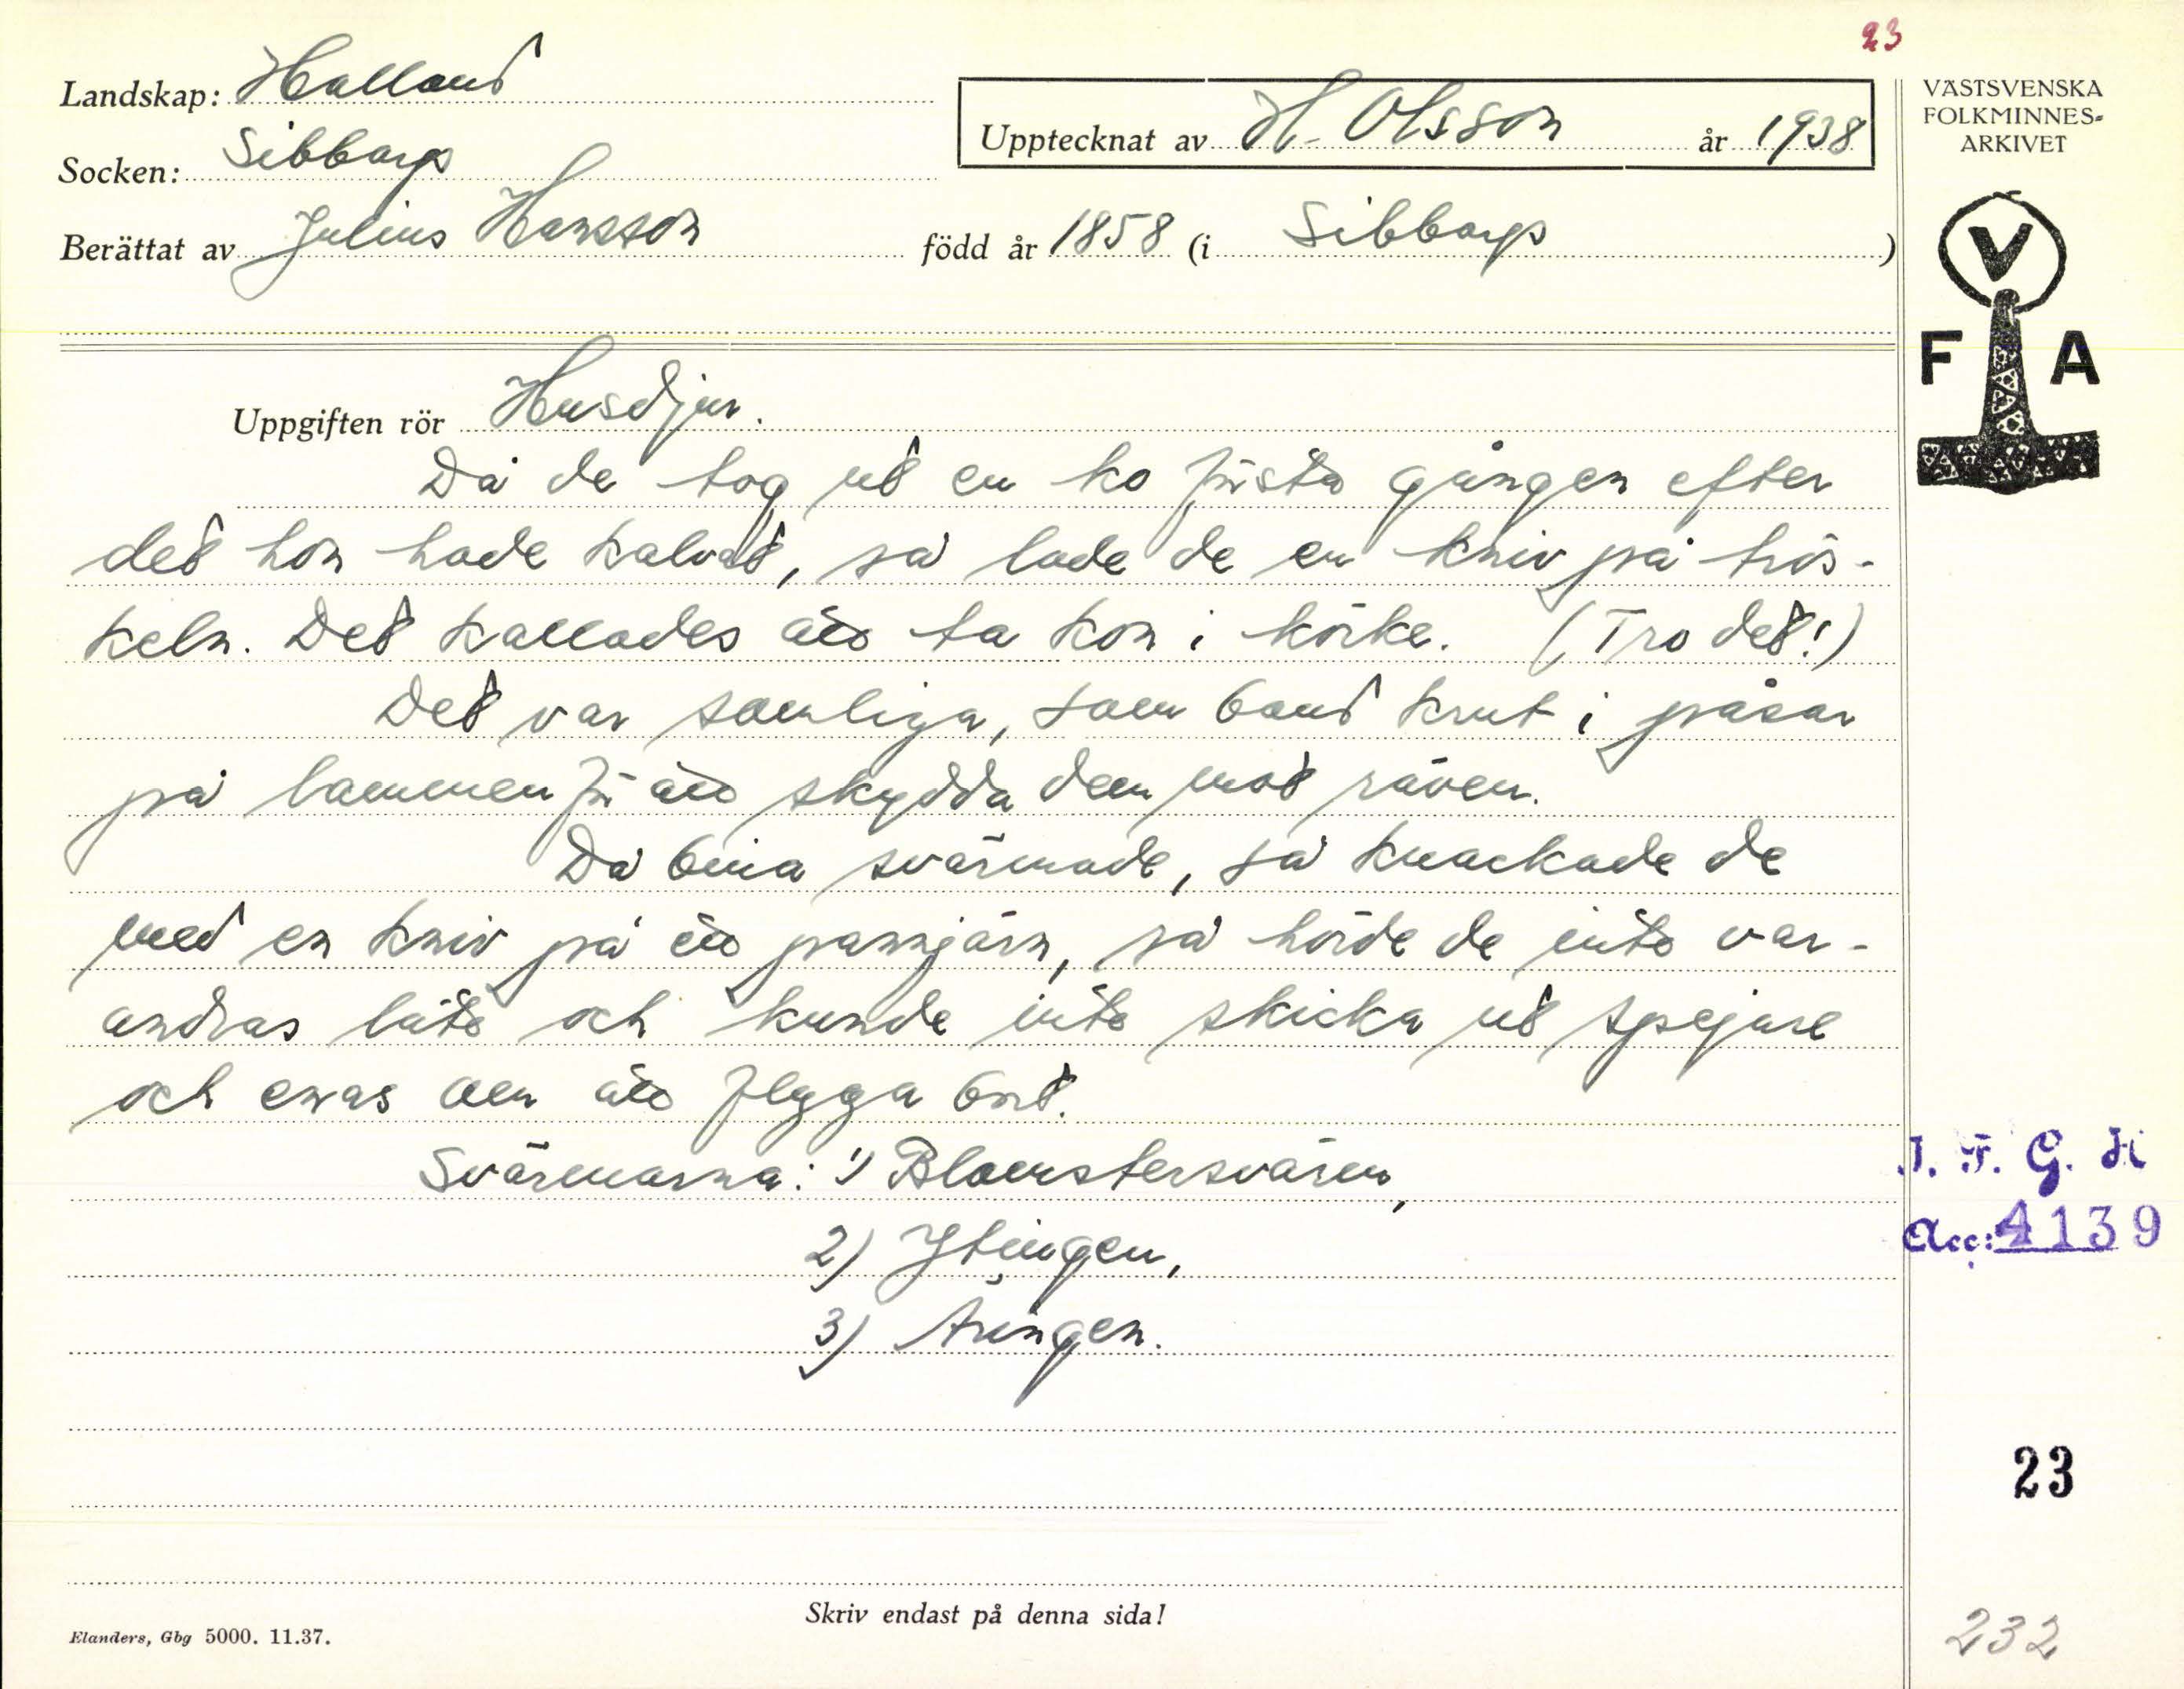 23
Landskap: Halland
Socken: Sibbarp
Upptecknat av H. Olsson år 1938
Berättat av Julius Hansson född år 1858 (i Sibbarp )
VÄSTSVENSKA
FOLKMINNES-
ARKIVET
V
F A
Uppgiften rör Husdjur.
Då de tog ut en ko första gången efter
det hon hade kalvat, så lade de en kniv på trös-
keln. Det kallades att ta kon i körke. (Tro det!)
Det var somliga, som band krut i påsar
på lammen för att skydda dem mot räven.
Då bina svärmade, så knackade de
med en kniv på ett pannjärn, så hörde de inte var-
andras läte och kunde inte skicka ut spejare
och enas om att flyga bort.
Svärmarna: 1) Blomstersvärm,
2) Ytingen,
3) Tringen.
I. F. G. H
Acc: 4139
23
Skriv endast på denna sida!
Elanders, Gbg 5000. 11.37.
232